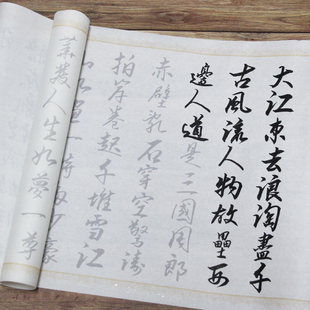 大江東去浪淘盡千
古風流人物故壘西
邊人道是三國周郎
赤壁亂石穿空驚濤
拍岸卷起千堆雪江
一時多少豪
人生如夢一尊